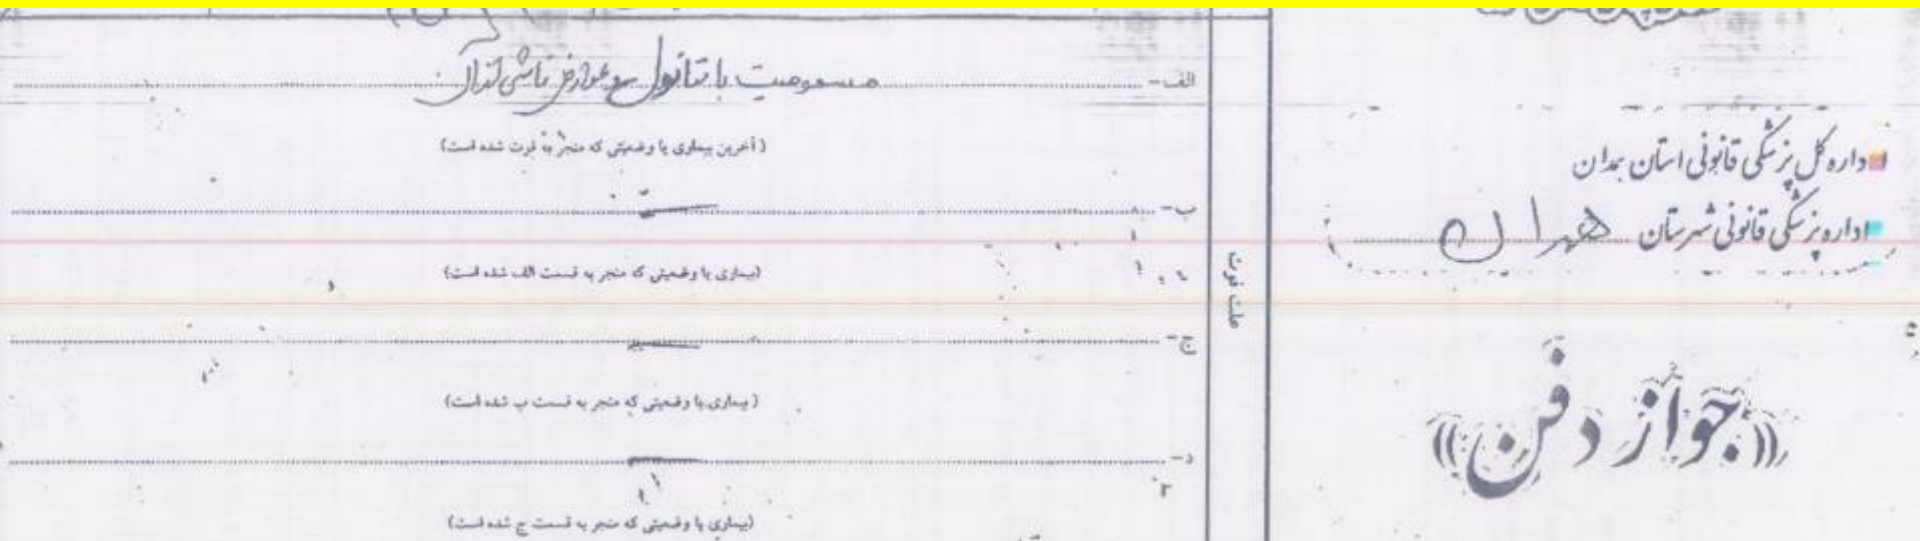 اداره کل پزشکی قانونی استان همدان
اداره پزشکی قانونی شهرستان همدان
((جواز دفن))
علت فوت
الف- مسمومیت با متانول و عوارض ناشی از آن
(آخرین بیماری یا وضعیتی که منجر به فوت شده است)
ب-
(بیماری یا وضعیتی که منجر به قسمت الف شده است)
ج-
(بیماری یا وضعیتی که منجر به قسمت ب شده است)
د-
(بیماری یا وضعیتی که منجر به قسمت ج شده است)